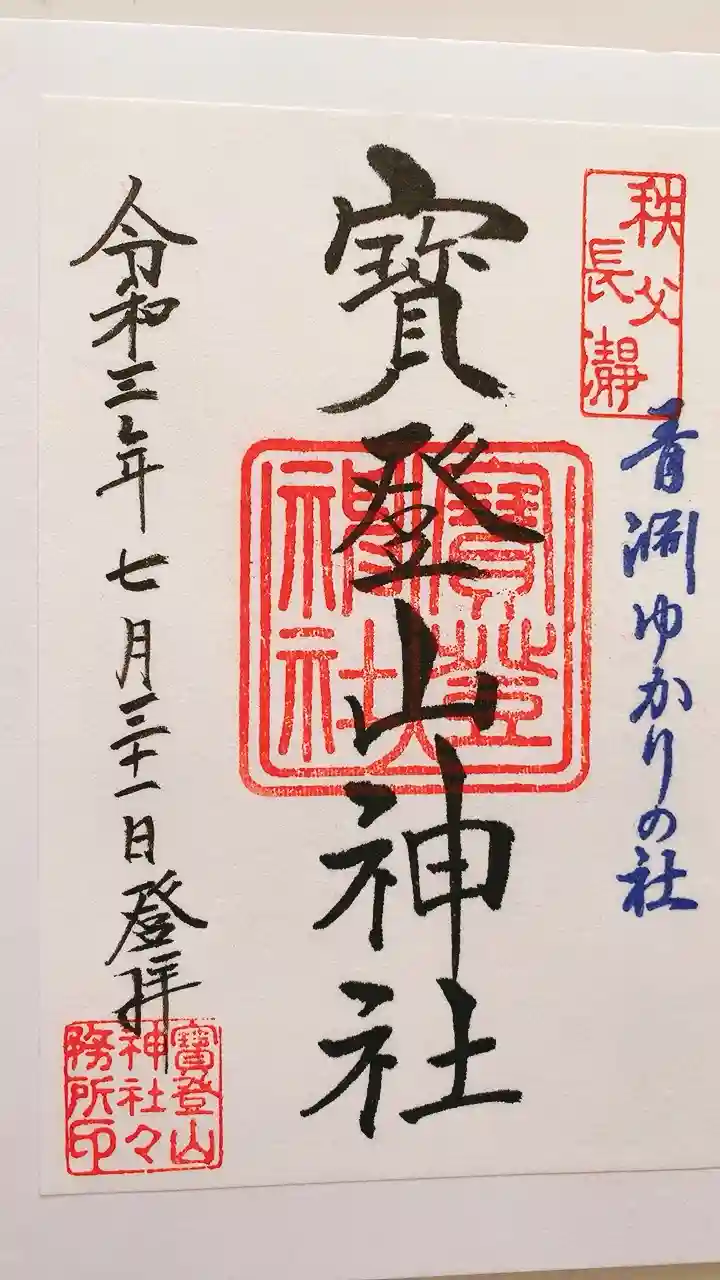 秩父
長瀞
青淵ゆかりの社
寳登山神社
寳登
山
神社
令和三年七月三十一日登拝
寳登山
神社々
務所印